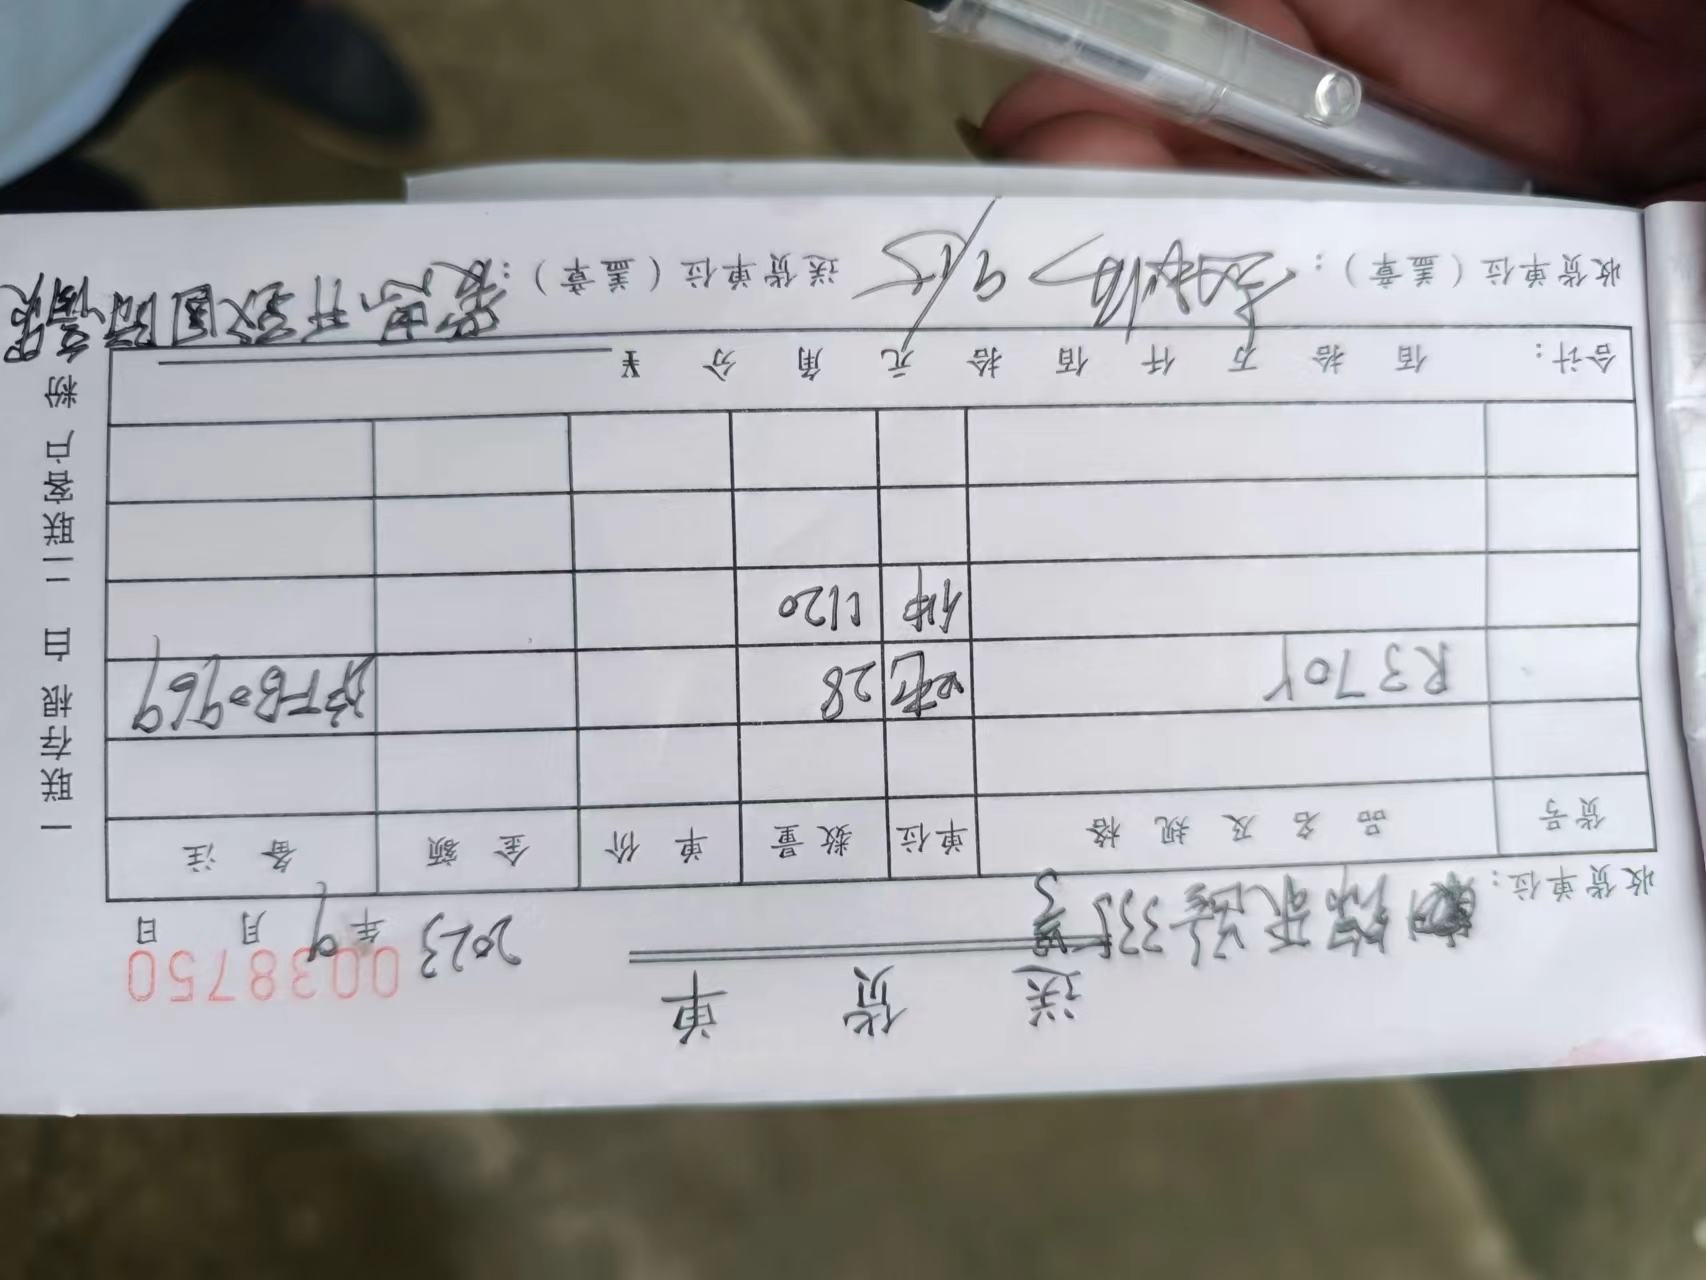 送货单
0038750
收货单位：
2023年9月 日
货号 品名及规格 单位 数量 单价 金额 备注
R370Y 吨 28 沪FB0969
件 1120
合计： 佰 拾 万 仟 佰 拾 元 角 分 ¥
收货单位（盖章）： 9/15 送货单位（盖章）：
一联存根 白 二联客户 粉